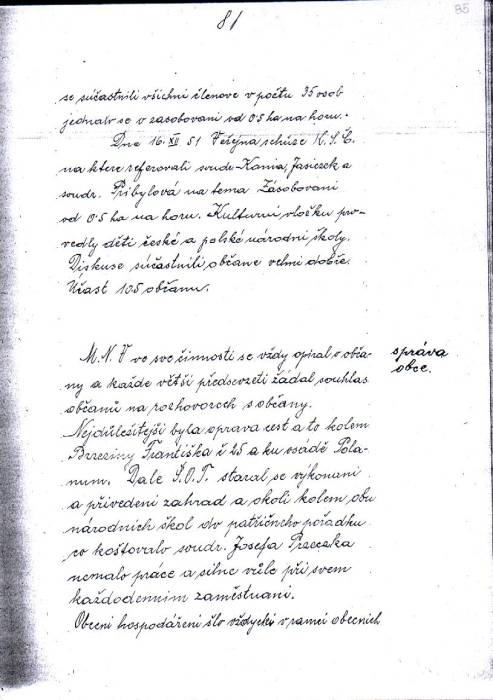 81
85
se súčastnili všichni členove v počtu 35 osob
jednalo se v zasobovani od 0·5 ha na horu.
Dne 16. XII 51 Veřejna schůze K.S.Č.
na ktere referovali soudr. Kania, Jasiczek a
soudr. Přibylová na tema Zásobovani
od 0·5 ha na horu. Kulturni vložku pro-
vedly děti české a polské národni školy.
Diskuse súčastnili občane velmi dobře.
Účast 105 občanu.
M.N.V ve sve činnosti se vždy opiral o obča-
ny a každe větši předsevzeti žádal souhlas
občanů na rozhovorech s občany.
správa
obce.
Nejdůležitejši byla oprava cest a to kolem
Brzeziny Františka č 25 a ku osádě Pola-
num. Dale Š.O.T. staral se výkonani
a přivedeni zahrad a okoli kolem obu
národnich škol do patřičneho pořádku
co koštovalo soudr. Josefa Przeczka
nemalo práce a silne vůle při svem
každodennim zaměstnani.
Obecni hospodářeni šlo vždycki v ramci obecnich